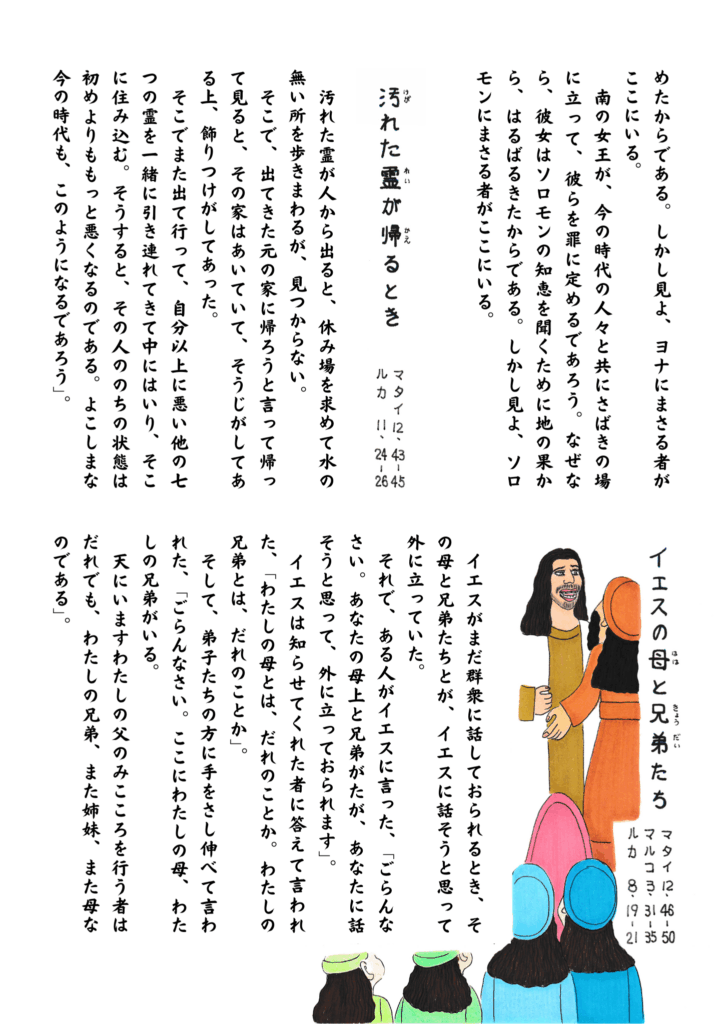 めたからである。しかし見よ、ヨナにまさる者が
ここにいる。
南の女王が、今の時代の人々と共にさばきの場
に立って、彼らを罪に定めるであろう。なぜな
ら、彼女はソロモンの知恵を聞くために地の果か
ら、はるばるきたからである。しかし見よ、ソロ
モンにまさる者がここにいる。
汚れた霊が帰るとき
けが
れい
かえ
マタイ12、43-45
ルカ 11、24-26
汚れた霊が人から出ると、休み場を求めて水の
無い所を歩きまわるが、見つからない。
そこで、出てきた元の家に帰ろうと言って帰っ
て見ると、その家はあいていて、そうじがしてあ
る上、飾りつけがしてあった。
そこでまた出て行って、自分以上に悪い他の七
つの霊を一緒に引き連れてきて中にはいり、そこ
に住み込む。そうすると、その人ののちの状態は
初めよりももっと悪くなるのである。よこしまな
今の時代も、このようになるであろう」。
イエスの母と兄弟たち
はは
きょう
だい
マタイ12、46-50
マルコ3、31-35
ルカ 8、19-21
イエスがまだ群衆に話しておられるとき、そ
の母と兄弟たちとが、イエスに話そうと思って
外に立っていた。
それで、ある人がイエスに言った、「ごらんな
さい。あなたの母上と兄弟がたが、あなたに話
そうと思って、外に立っておられます」。
イエスは知らせてくれた者に答えて言われ
た、「わたしの母とは、だれのことか。わたしの
兄弟とは、だれのことか」。
そして、弟子たちの方に手をさし伸べて言わ
れた、「ごらんなさい。ここにわたしの母、わた
しの兄弟がいる。
天にいますわたしの父のみこころを行う者は
だれでも、わたしの兄弟、また姉妹、また母な
のである」。